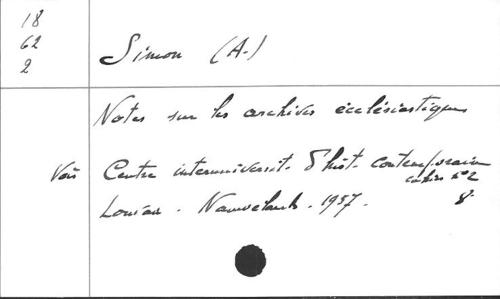 18
62
2
Simon (A.)
Notes sur les archives ecclésiastiques
Voir Centre interuniversit. d'hist. contemporaine
cahier n°2
Louvain. Nauwelaerts. 1957. 8°